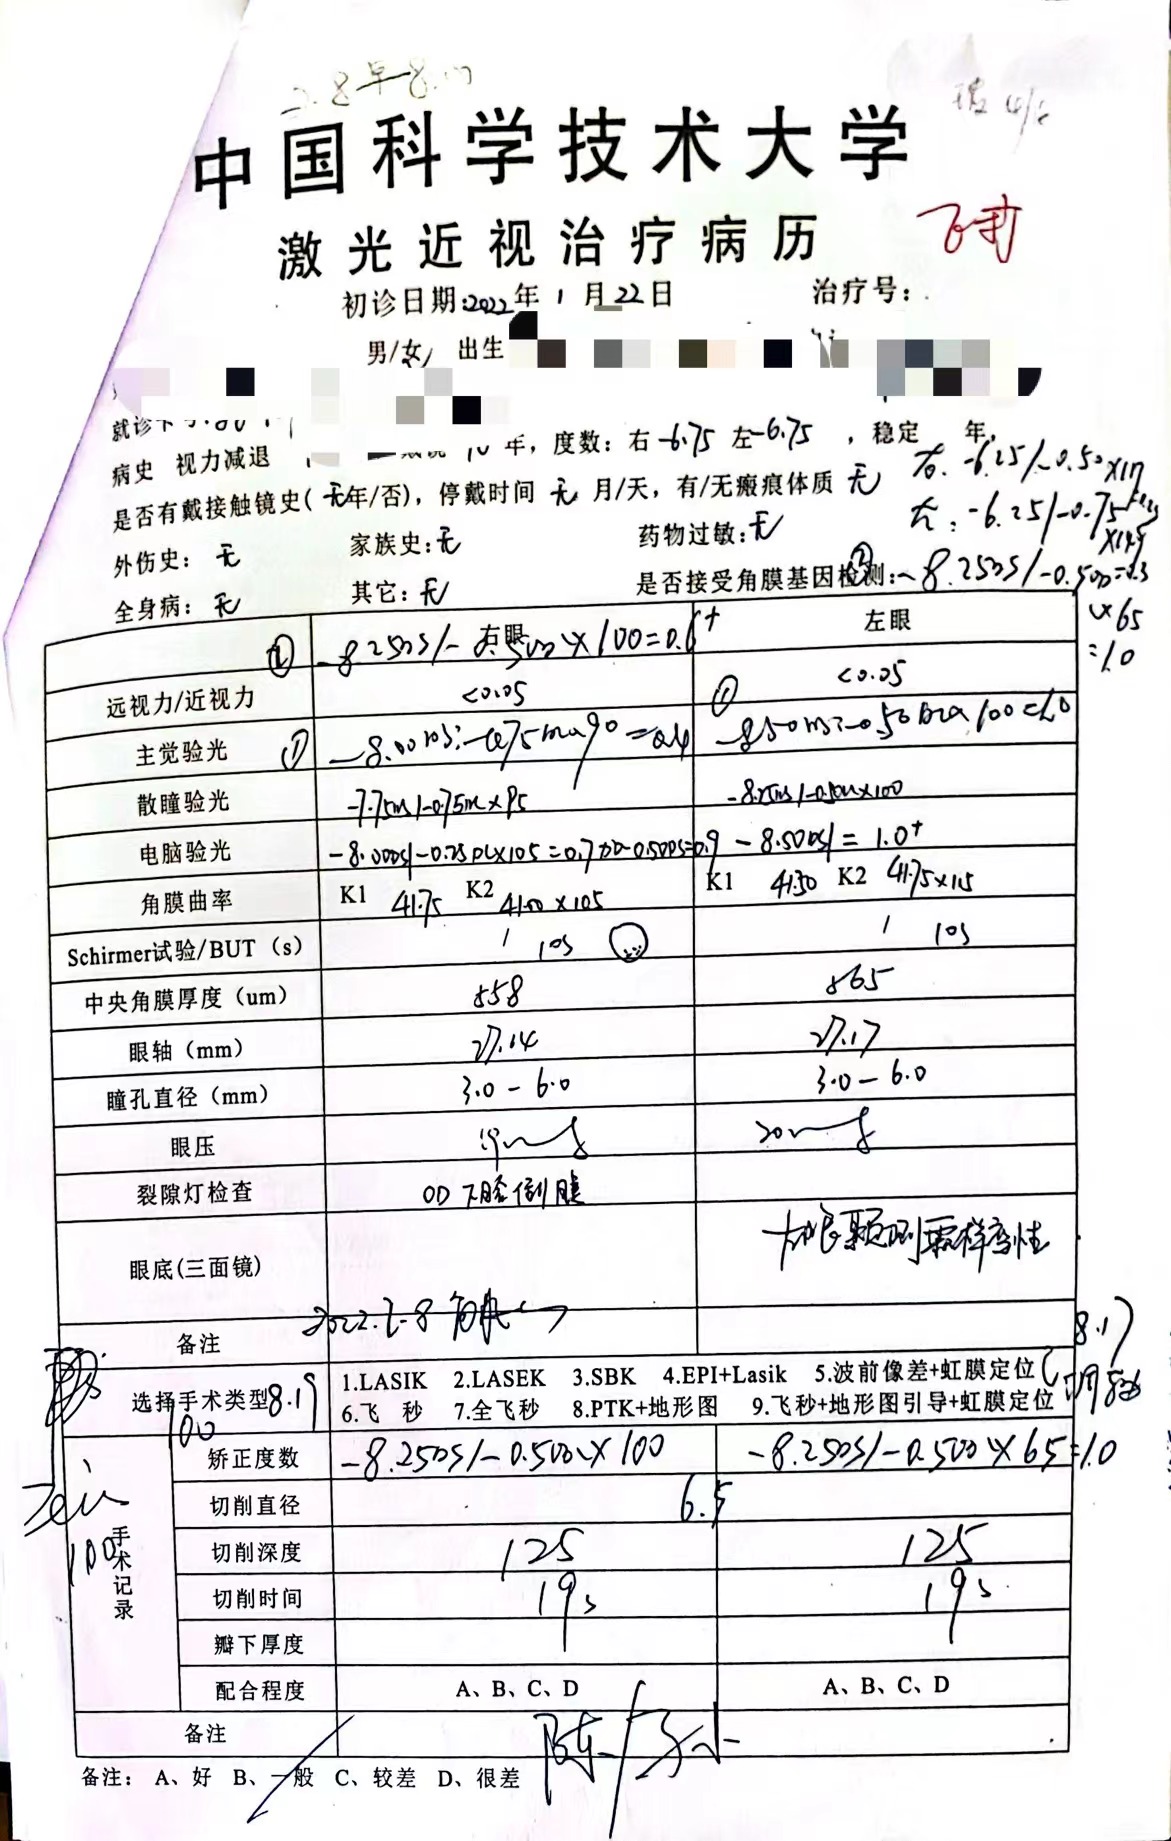 中国科学技术大学
激光近视治疗病历
飞秒
初诊日期:2022年 1 月 22 日 治疗号:
男/女 出生
就诊卡号:
病史 视力减退 戴镜 10 年，度数：右 -6.75 左 -6.75 ，稳定 年，
右. -6.25/-0.50×117
是否有戴接触镜史(无年/否)，停戴时间 无 月/天，有/无瘢痕体质 无
左: -6.25/-0.75
×149
外伤史： 无 家族史:无 药物过敏:无
全身病： 无 其它：无 是否接受角膜基因检测: ② -8.25DS/-0.50DC
×65
=1.0
右眼 左眼
② -8.25DS/-0.50DC×100=0.6+
远视力/近视力 <0.05 <0.05
主觉验光 ① -8.00DS:-0.75DC×90=0.4 ① -8.50DS:-0.50DC×100=1.0
散瞳验光 -7.75DS/-0.75DC×95 -8.25DS/-0.50DC×100
电脑验光 -8.00DS/-0.75DC×105=0.7加-0.50DS=0.9 -8.50DS/=1.0+
角膜曲率 K1 41.75 K2 41.00×105 K1 41.50 K2 41.75×115
Schirmer试验/BUT（s） / 10s / 10s
中央角膜厚度（um） 558 565
眼轴（mm） 27.14 27.17
瞳孔直径（mm） 3.0-6.0 3.0-6.0
眼压 19mmHg 20mmHg
裂隙灯检查 OD 下睑倒睫
眼底(三面镜) 颞侧霜样变性
备注 2022.2-8
8.17
选择手术类型 8.19 1.LASIK 2.LASEK 3.SBK 4.EPI+Lasik 5.波前像差+虹膜定位
6.飞 秒 7.全飞秒 8.PTK+地形图 9.飞秒+地形图引导+虹膜定位
100
手术记录
100
矫正度数 -8.25DS/-0.50DC×100 -8.25DS/-0.50DC×65=1.0
切削直径 6.5
切削深度 125 125
切削时间 19s 19s
瓣下厚度
配合程度 A、B、C、D A、B、C、D
备注
备注： A、好 B、一般 C、较差 D、很差